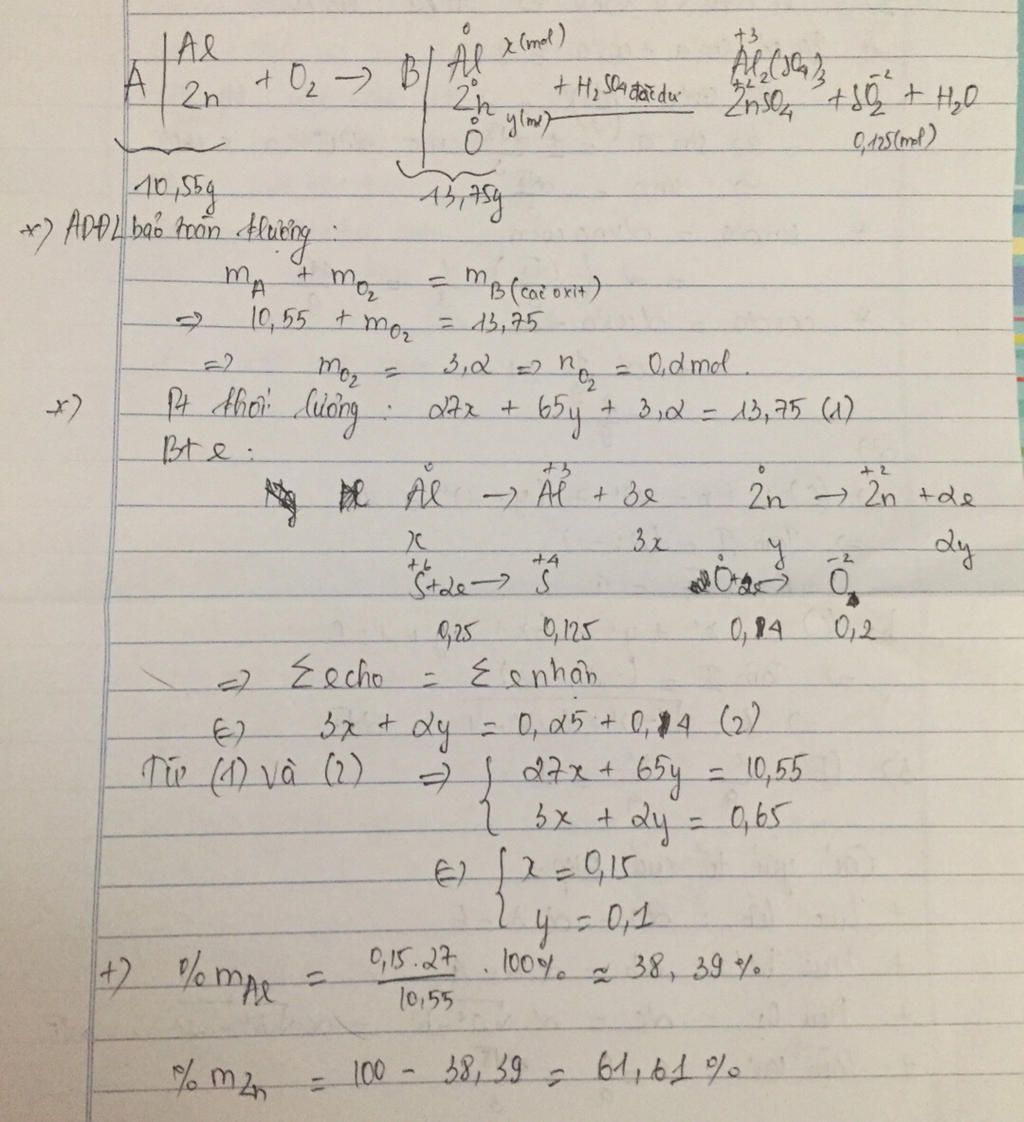 A | Al Zn + O2 → B | Al⁰ x(mol) Zn⁰ y(mol) O⁰ + H2SO4 đặc dư → Al2⁺³(SO4)3 Zn⁺²SO4 + SO2⁻² + H2O
0,125(mol)
10,55g 13,75g
*) ADĐL bảo toàn klượng :
mA + mO2 = mB (các oxit)
=> 10,55 + mO2 = 13,75
=> mO2 = 3,2 => nO2 = 0,2 mol.
*) Pt khối lượng : 27x + 65y + 3,2 = 13,75 (1)
Bt e :
Al⁰ → Al⁺³ + 3e Zn⁰ → Zn⁺² + 2e
x 3x y 2y
S⁺⁶ + 2e → S⁺⁴ O⁰ + 2e → O⁻²
0,25 0,125 0,4 0,2
=> Σ echo = Σ enhận
<=> 3x + 2y = 0,25 + 0,4 (2)
Từ (1) và (2) => { 27x + 65y = 10,55
3x + 2y = 0,65
<=> { x = 0,15
y = 0,1
+) %mAl = 0,15.27/10,55 . 100% ≈ 38,39%
%mZn = 100 - 38,39 = 61,61%